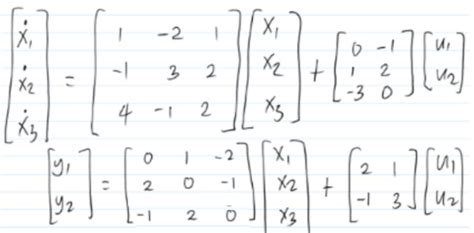 [ẋ₁ ẋ₂ ẋ₃] = [1 -2 1; -1 3 2; 4 -1 2] [x₁ x₂ x₃] + [0 -1; 1 2; -3 0] [u₁ u₂]
[y₁ y₂] = [0 1 -2; 2 0 -1; -1 2 0] [x₁ x₂ x₃] + [2 1; -1 3] [u₁ u₂]